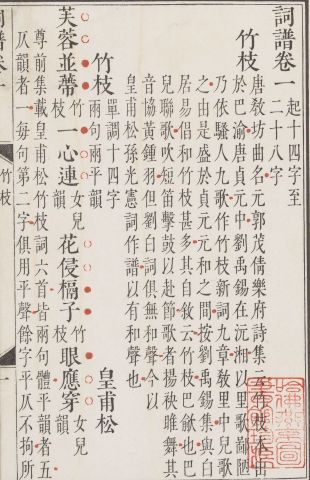 詞譜卷一 起十四字至
二十八字
竹枝 唐敎坊曲名元郭茂倩樂府詩集云竹枝本出
於巴渝唐貞元中劉禹錫在沅湘以里歌鄙陋
乃依騷人九歌作竹枝新詞九章敎里中兒歌
之由是盛於貞元元和之間按劉禹錫集與白
居易倡和竹枝甚多其自敘云竹枝巴歈也巴
兒聯歌吹短笛擊鼓以赴節歌者揚袂睢舞其
音協黃鍾羽但劉白詞俱無和聲今以
皇甫松孫光憲詞作譜以有和聲也
竹枝 單調十四字
兩句兩平韻 皇甫松
芙蓉並蔕竹枝一心連女兒韻 花侵槅子竹枝眼應穿女兒韻
尊前集載皇甫松竹枝詞六首皆兩句體平韻者五
仄韻者一每句第二字俱用平聲餘字平仄不拘所
詞譜卷一 竹枝 一